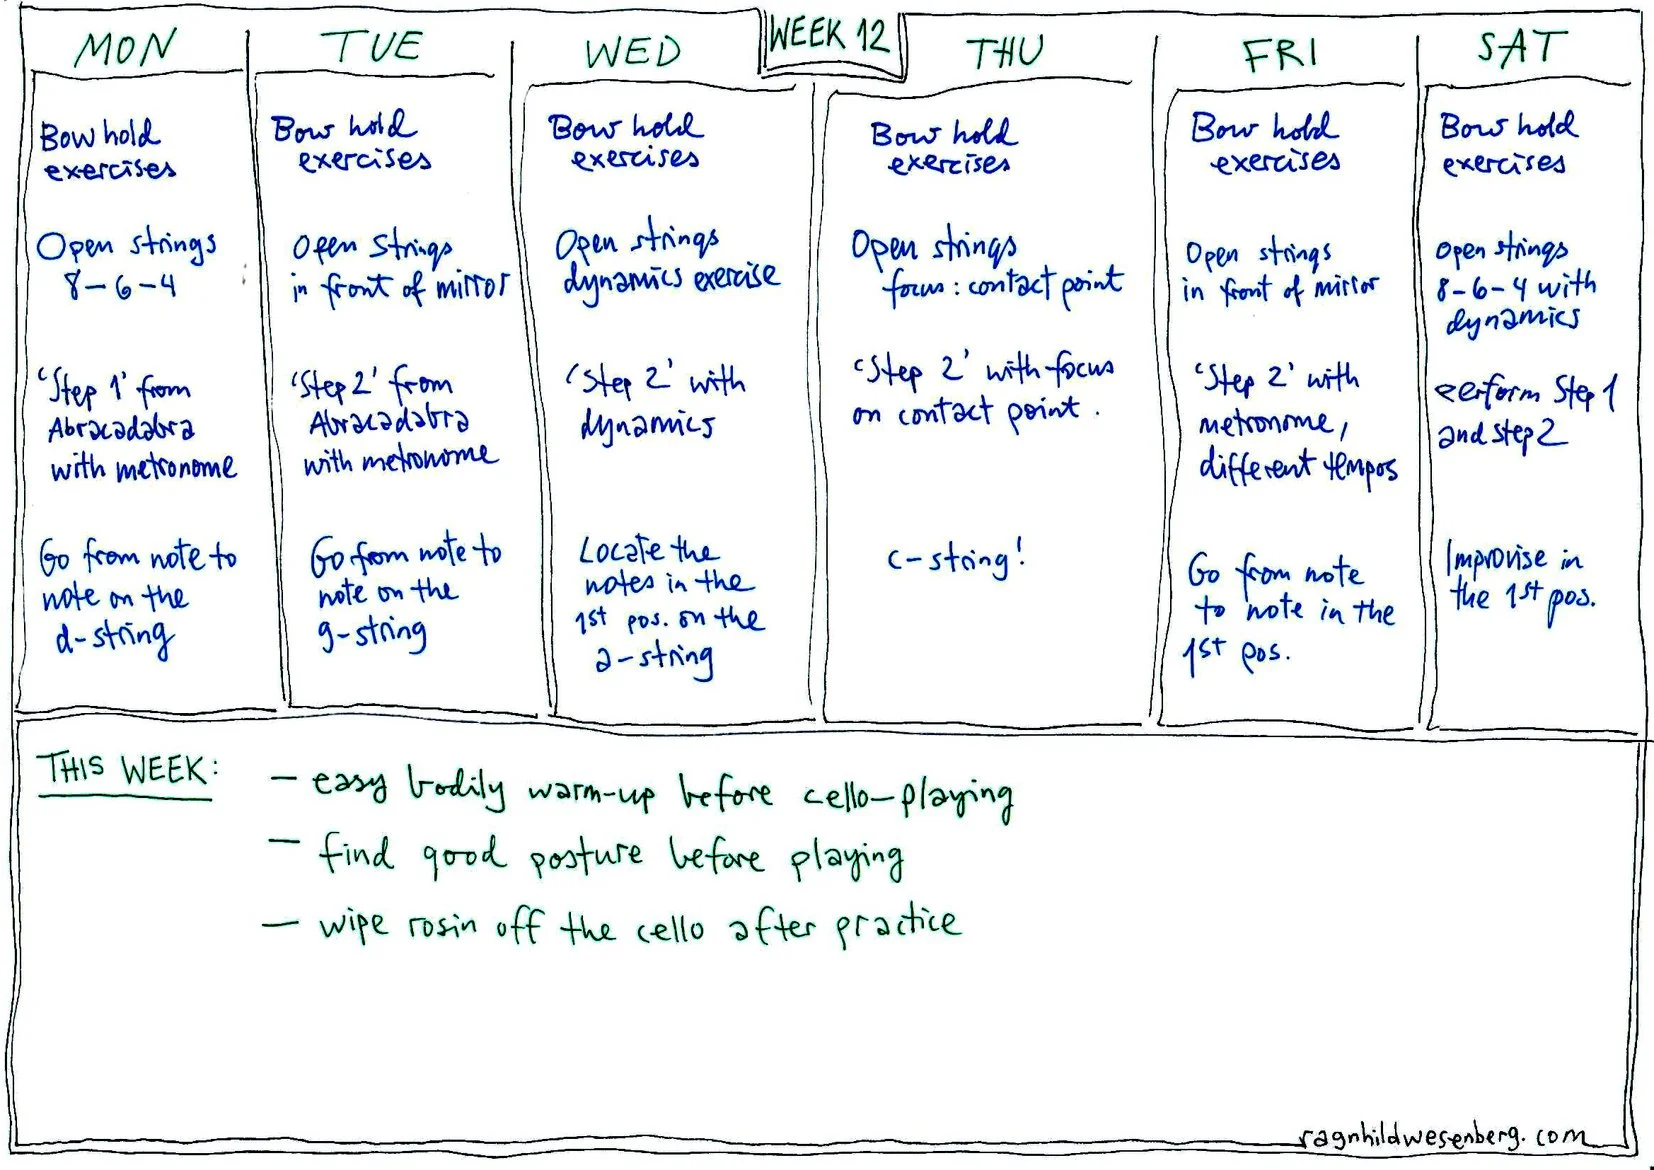 WEEK 12
MON
Bow hold
exercises
Open strings
8-6-4
'Step 1' from
Abracadabra
with metronome
Go from note to
note on the
d-string
TUE
Bow hold
exercises
Open Strings
in front of mirror
'Step 2' from
Abracadabra
with metronome
Go from note to
note on the
g-string
WED
Bow hold
exercises
Open strings
dynamics exercise
'Step 2' with
dynamics
Locate the
notes in the
1st pos. on the
a-string
THU
Bow hold
exercises
Open strings
focus: contact point
'Step 2' with focus
on contact point.
c-string!
FRI
Bow hold
exercises
Open strings
in front of mirror
'Step 2' with
metronome,
different tempos
Go from note
to note in the
1st pos.
SAT
Bow hold
exercises
Open strings
8-6-4 with
dynamics
Perform Step 1
and step 2
Improvise in
the 1st pos.
THIS WEEK:
- easy bodily warm-up before cello-playing
- find good posture before playing
- wipe rosin off the cello after practice
ragnhildwesenberg.com